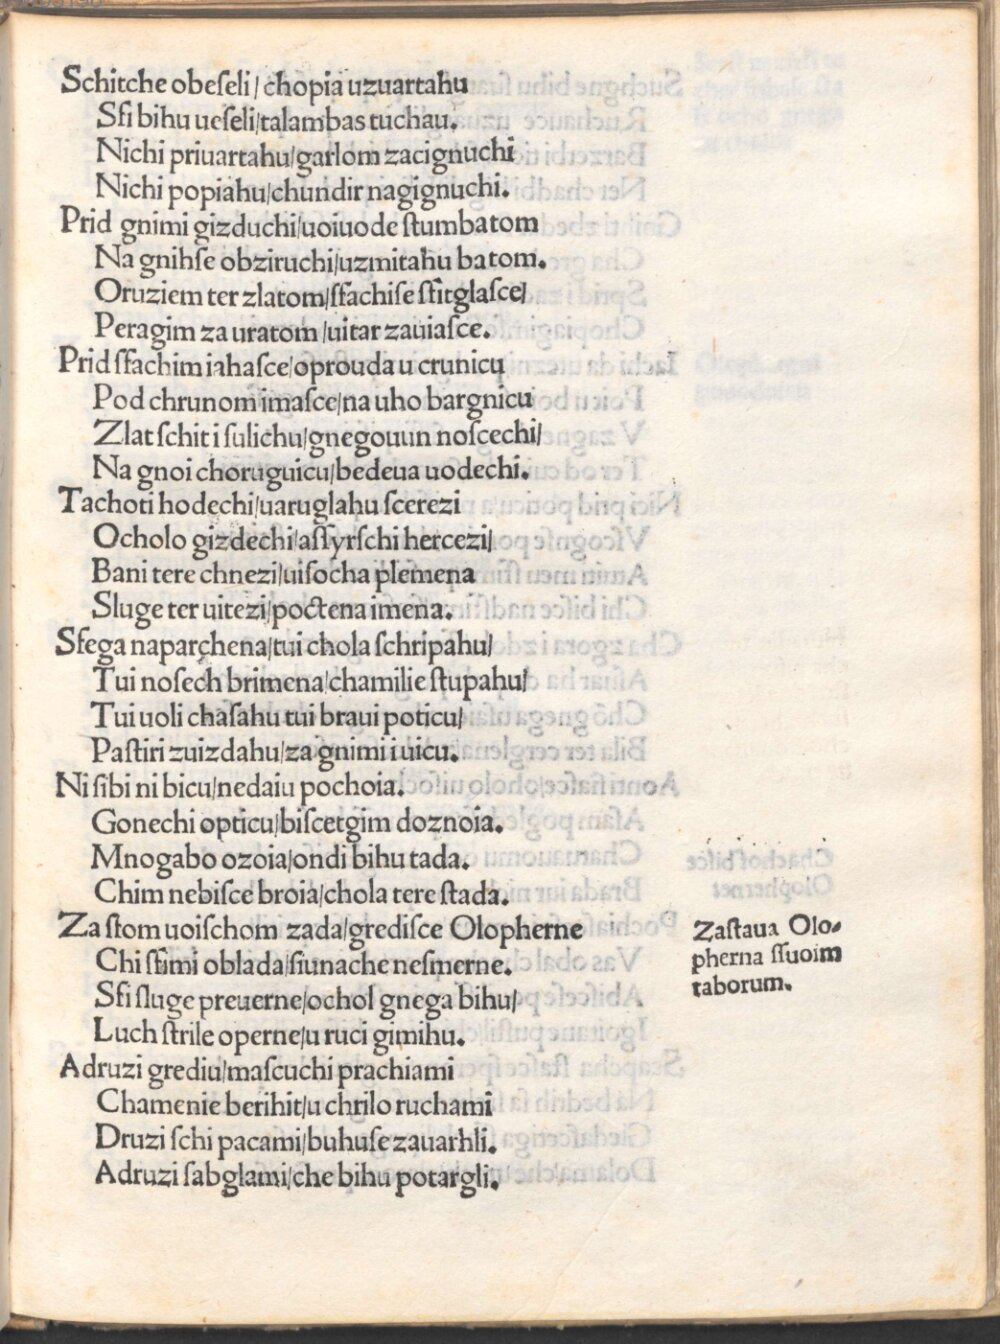 Schitche obeſeli/ chopia uzuartahu
Sfi bihu ueſeli/talambas tuchau.
Nichi priuartahu/garlom zacignuchi
Nichi popiahu/chundir nagignuchi.
Prid gnimi gizduchi/uoiuode ſtumbatom
Na gnihſe obziruchi/uzmitahu batom.
Oruziem ter zlatom/ſfachiſe ſfitglaſce/
Peragim za uratom/uitar zauiaſce.
Prid ſfachim iahaſce/oprouda u crunicu
Pod chrunom imaſce/na uho bargnicu
Zlat ſchit i ſulichu/gnegouun noſcechi/
Na gnoi choruguicu/bedeua uodechi.
Tachoti hodechi/uaruglahu ſcerezi
Ocholo gizdechi/aſſyrſchi hercezi/
Bani tere chnezi/uiſocha plemena
Sluge ter uitezi/poctena imena.
Sfega naparchena/tui chola ſchripahu/
Tui noſech brimena/chamilie ſtupahu/
Tui uoli chaſahu tui braui poticu/
Paſtiri zuizdahu/za gnimi i uicu.
Ni ſibi ni bicu/nedaiu pochoia.
Gonechi opticu/biſcetgim doznoia.
Mnogabo ozoia/ondi bihu tada.
Chim nebiſce broia/chola tere ſtada.
Za ſtom uoiſchom zada/grediſce Olopherne
Chi ſfimi oblada/ſiunache neſmerne.
Sfi ſluge preuerne/ochol gnega bihu/
Luch ſtrile operne/u ruci gimihu.
A druzi grediu/maſcuchi prachiami
Chamenie berihit/u chrilo ruchami
Druzi ſchi pacami/buhuſe zauarhli.
A druzi ſabglami/che bihu potargli.
Zaſtaua Olo-
pherna ſſuoim
taborum.